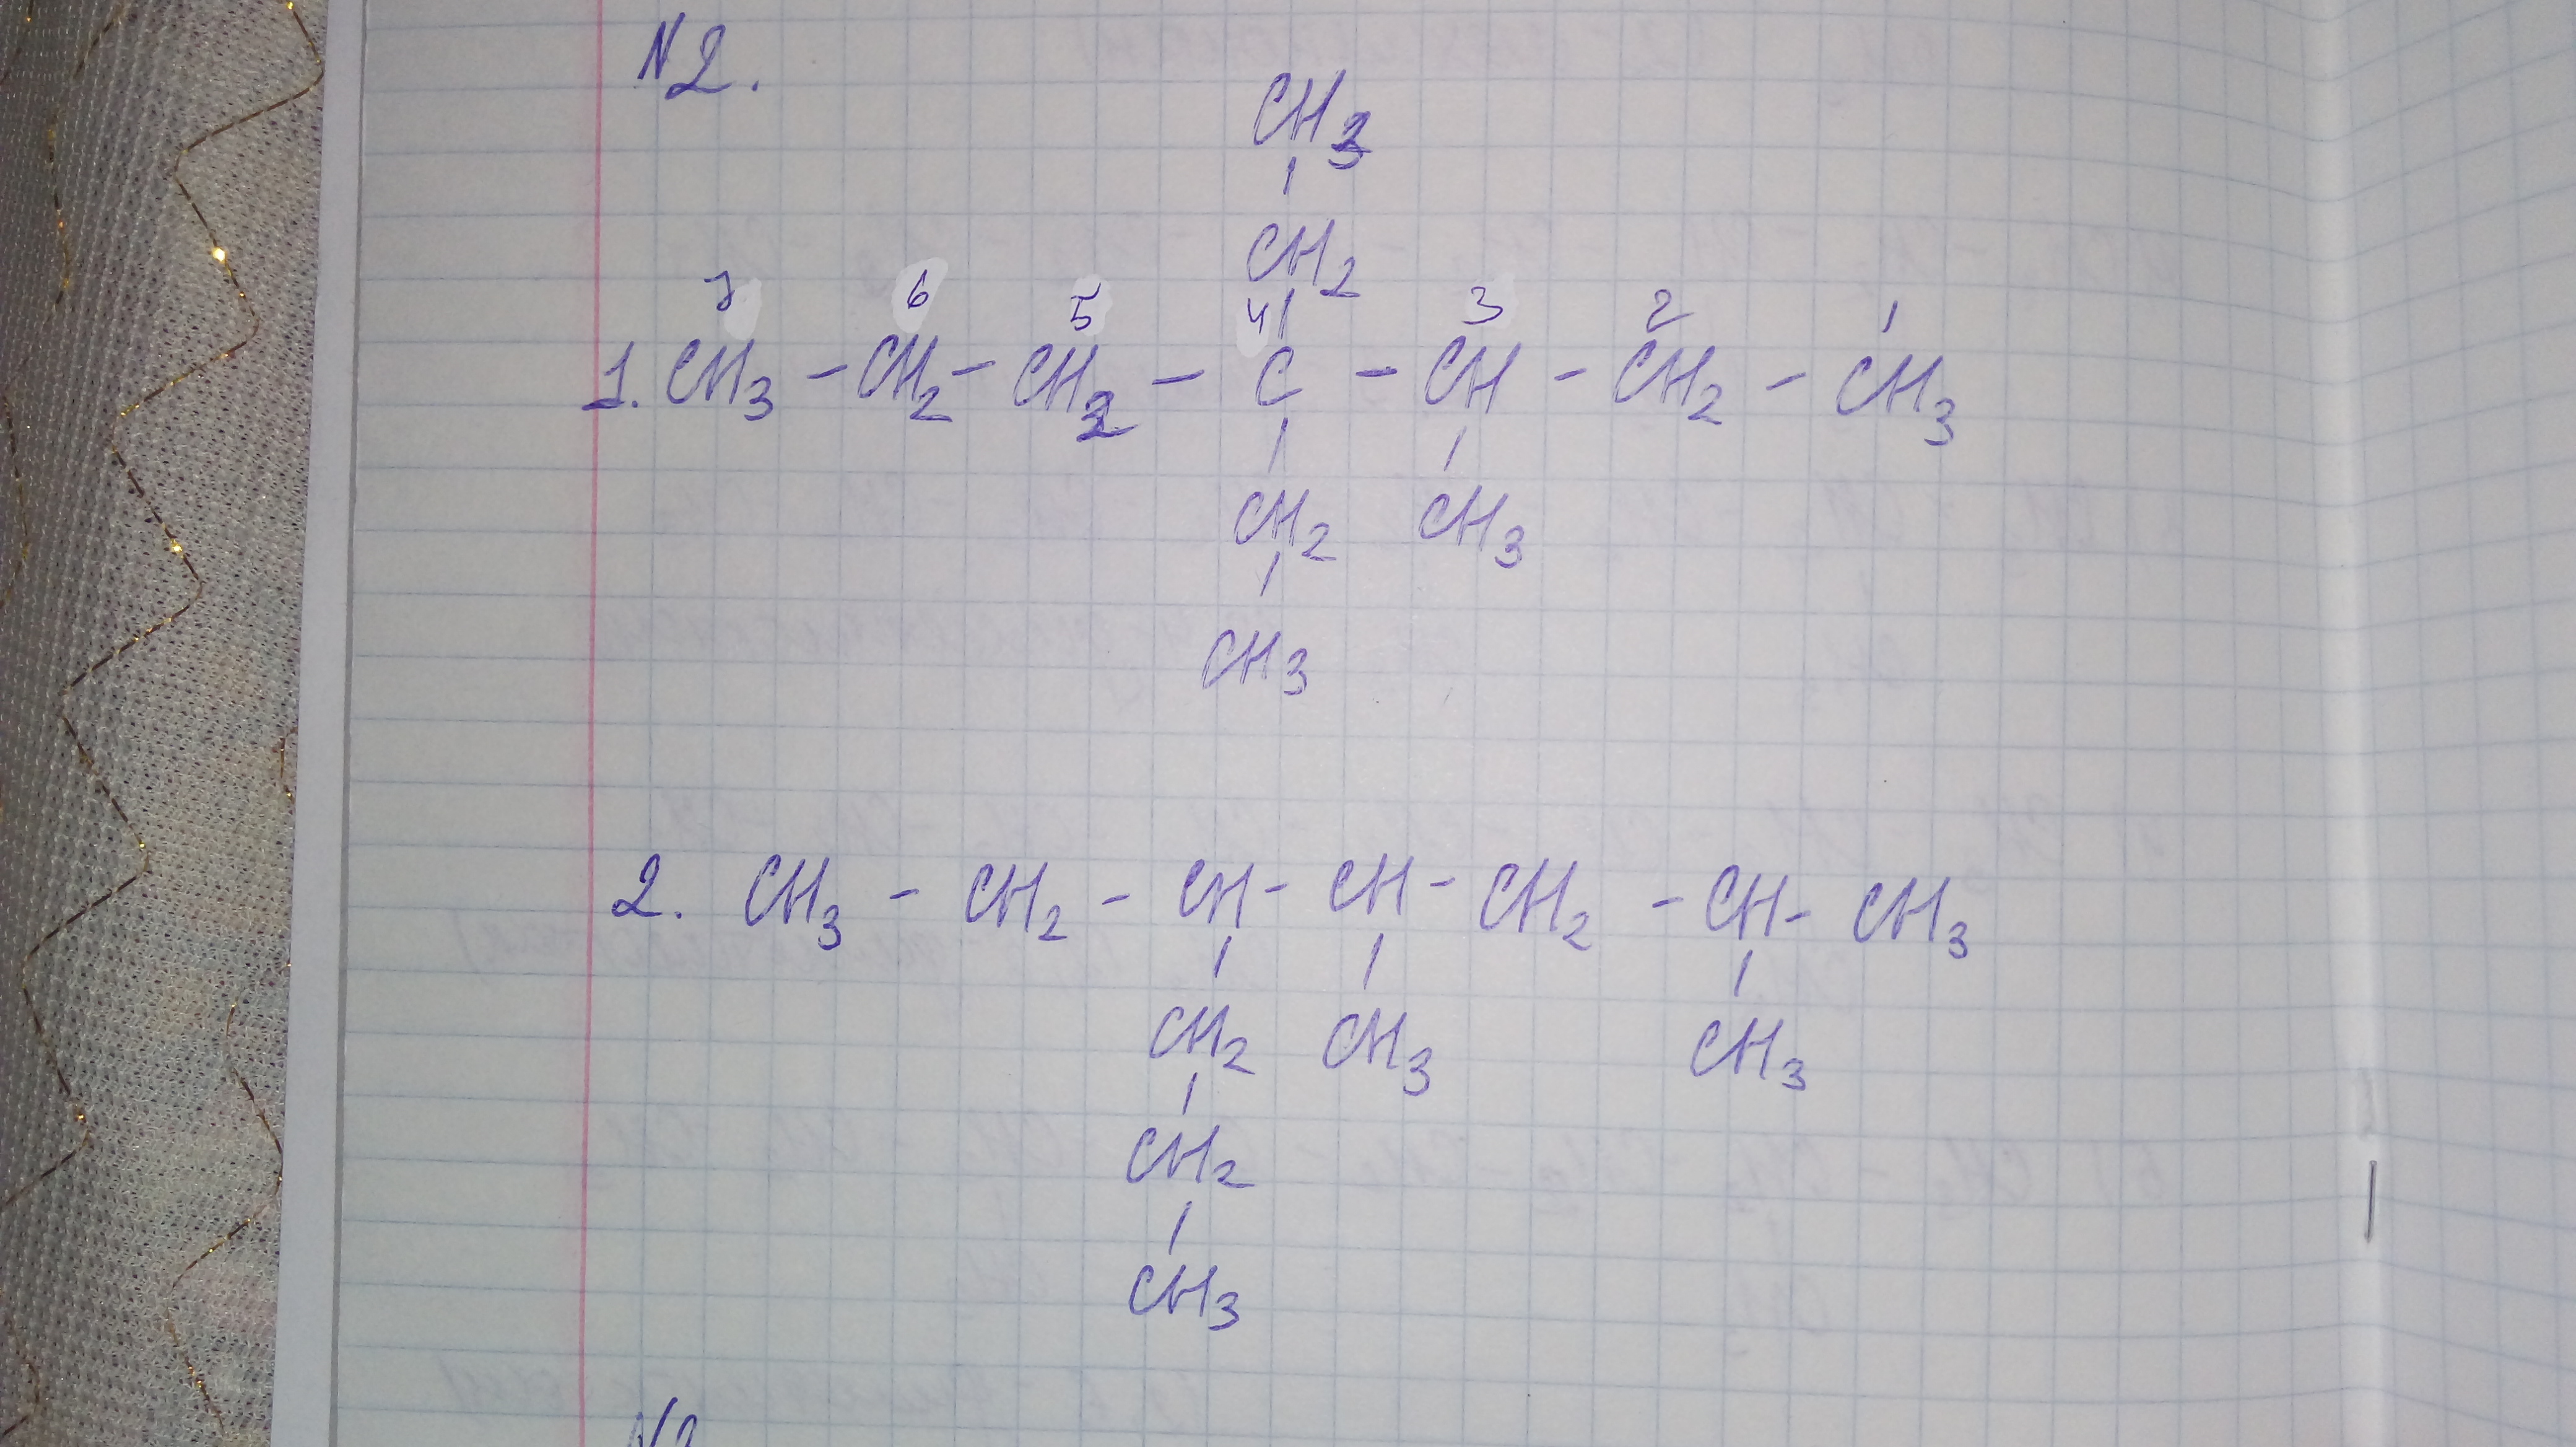 N2.
CH3
CH2
7 6 5 4 3 2 1
1. CH3 - CH2 - CH2 - C - CH - CH2 - CH3
CH2 CH3
CH3
2. CH3 - CH2 - CH - CH - CH2 - CH - CH3
CH2 CH3 CH3
CH2
CH3